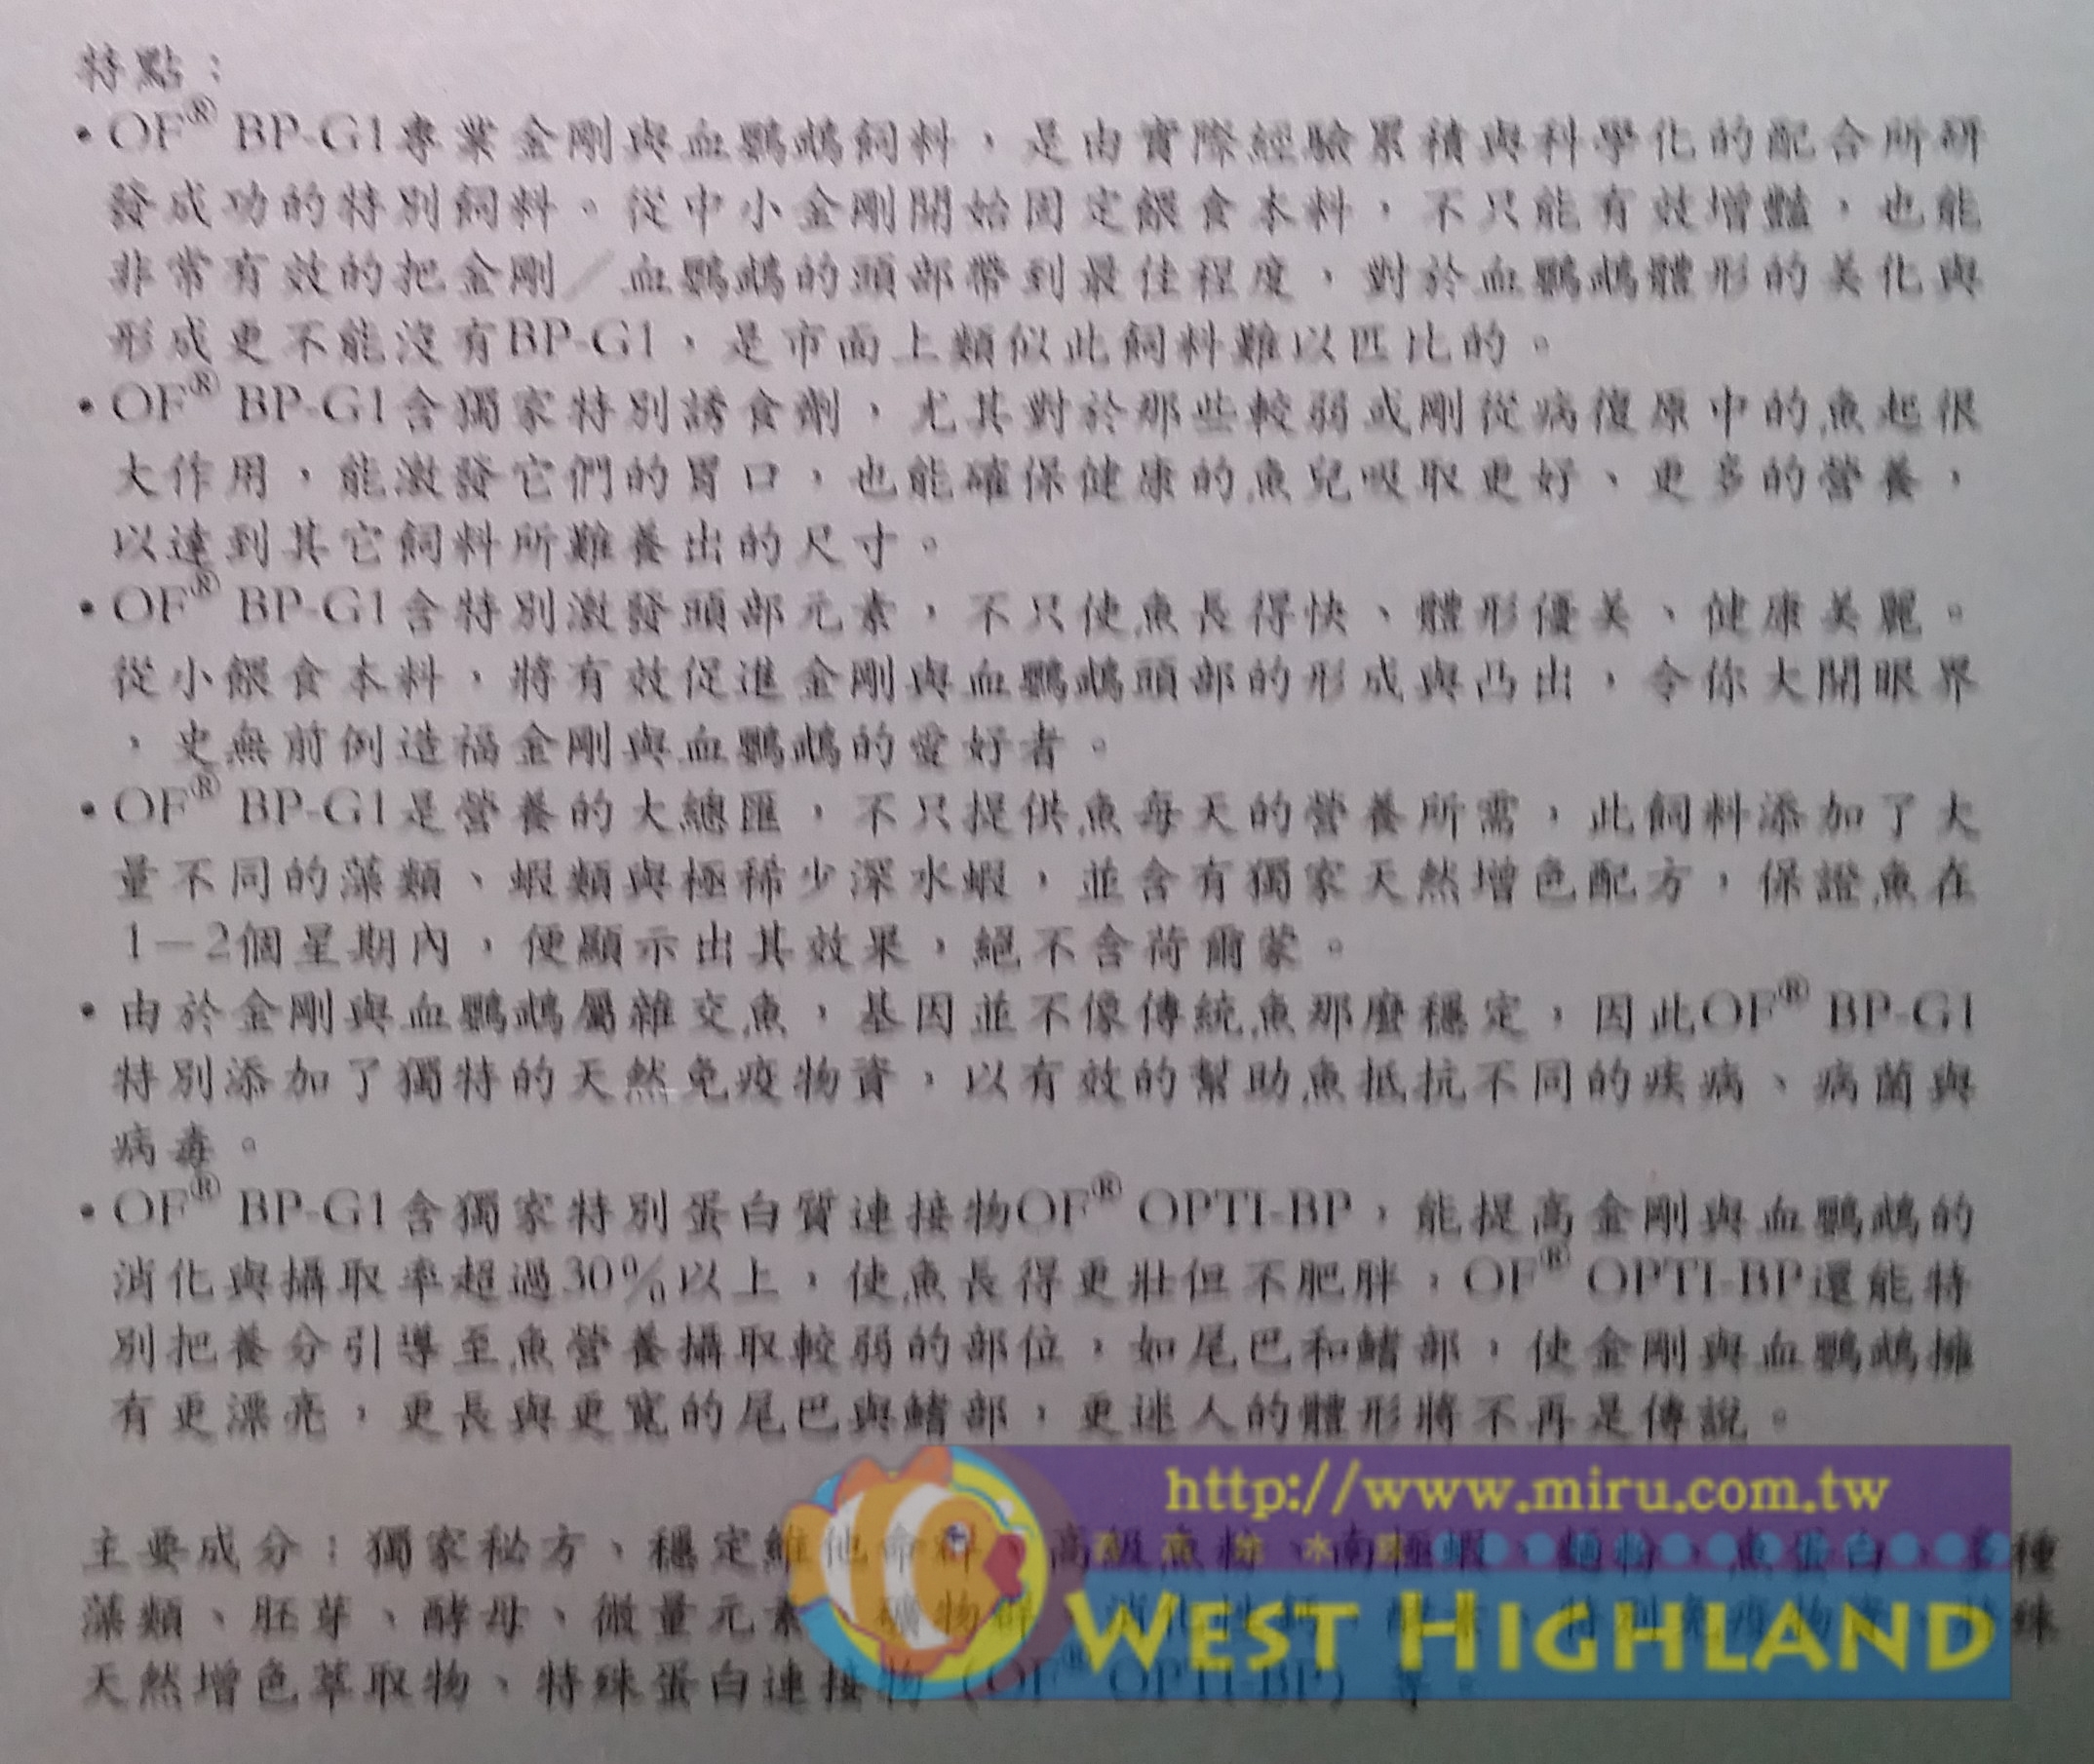 特點：
• OF® BP-G1專業金剛與血鸚鵡飼料，是由實際經驗累積與科學化的配合所研
發成功的特別飼料。從中小金剛開始固定餵食本料，不只能有效增豔，也能
非常有效的把金剛／血鸚鵡的頭部帶到最佳程度，對於血鸚鵡體形的美化與
形成更不能沒有BP-G1，是市面上類似此飼料難以匹比的。
• OF® BP-G1含獨家特別誘食劑，尤其對於那些較弱或剛從病復原中的魚起很
大作用，能激發它們的胃口，也能確保健康的魚兒吸取更好、更多的營養，
以達到其它飼料所難養出的尺寸。
• OF® BP-G1含特別激發頭部元素，不只使魚長得快、體形優美、健康美麗。
從小餵食本料，將有效促進金剛與血鸚鵡頭部的形成與凸出，令你大開眼界
，史無前例造福金剛與血鸚鵡的愛好者。
• OF® BP-G1是營養的大總匯，不只提供魚每天的營養所需，此飼料添加了大
量不同的藻類、蝦類與極稀少深水蝦，並含有獨家天然增色配方，保證魚在
1－2個星期內，便顯示出其效果，絕不含荷爾蒙。
• 由於金剛與血鸚鵡屬雜交魚，基因並不像傳統魚那麼穩定，因此OF® BP-G1
特別添加了獨特的天然免疫物資，以有效的幫助魚抵抗不同的疾病、病菌與
病毒。
• OF® BP-G1含獨家特別蛋白質連接物OF® OPTI-BP，能提高金剛與血鸚鵡的
消化與攝取率超過30%以上，使魚長得更壯但不肥胖，OF® OPTI-BP還能特
別把養分引導至魚營養攝取較弱的部位，如尾巴和鰭部，使金剛與血鸚鵡擁
有更漂亮，更長與更寬的尾巴與鰭部，更迷人的體形將不再是傳說。
http://www.miru.com.tw
主要成分：獨家秘方、穩定維他命群、高級魚粉、南極蝦、麵粉、魚蛋白、多種
藻類、胚芽、酵母、微量元素、礦物群、特別免疫物資、特殊
WEST HIGHLAND
天然增色萃取物、特殊蛋白連接物（OF® OPTI-BP）等。